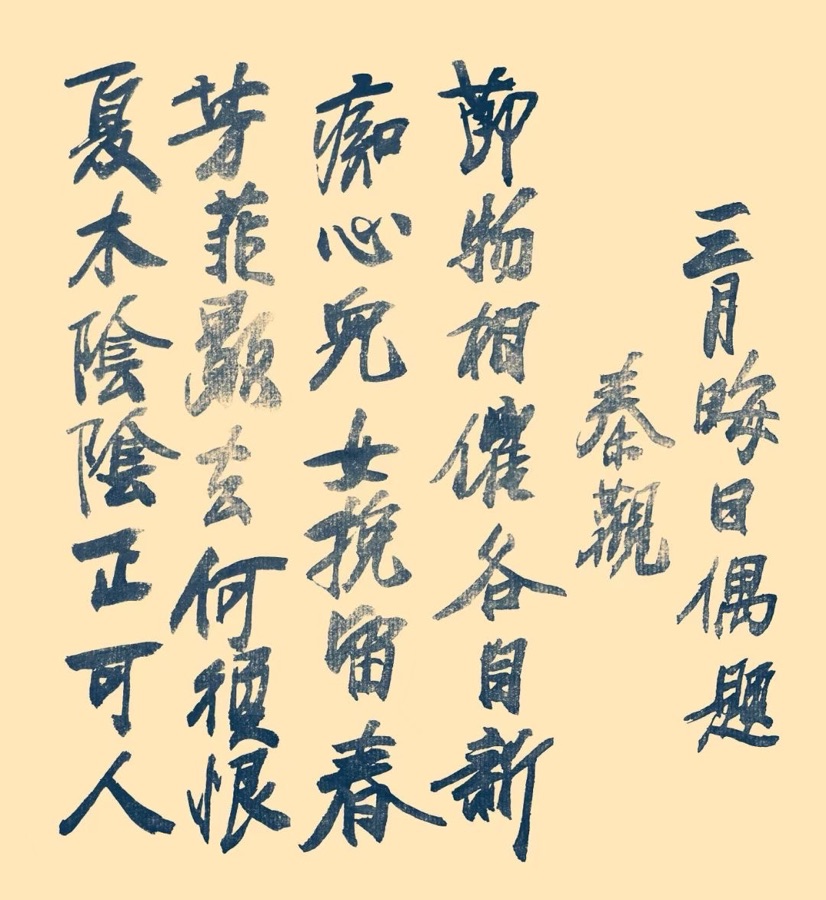 三月晦日偶題
秦觀
節物相催各自新
痴心兒女挽留春
芳菲歇去何須恨
夏木陰陰正可人